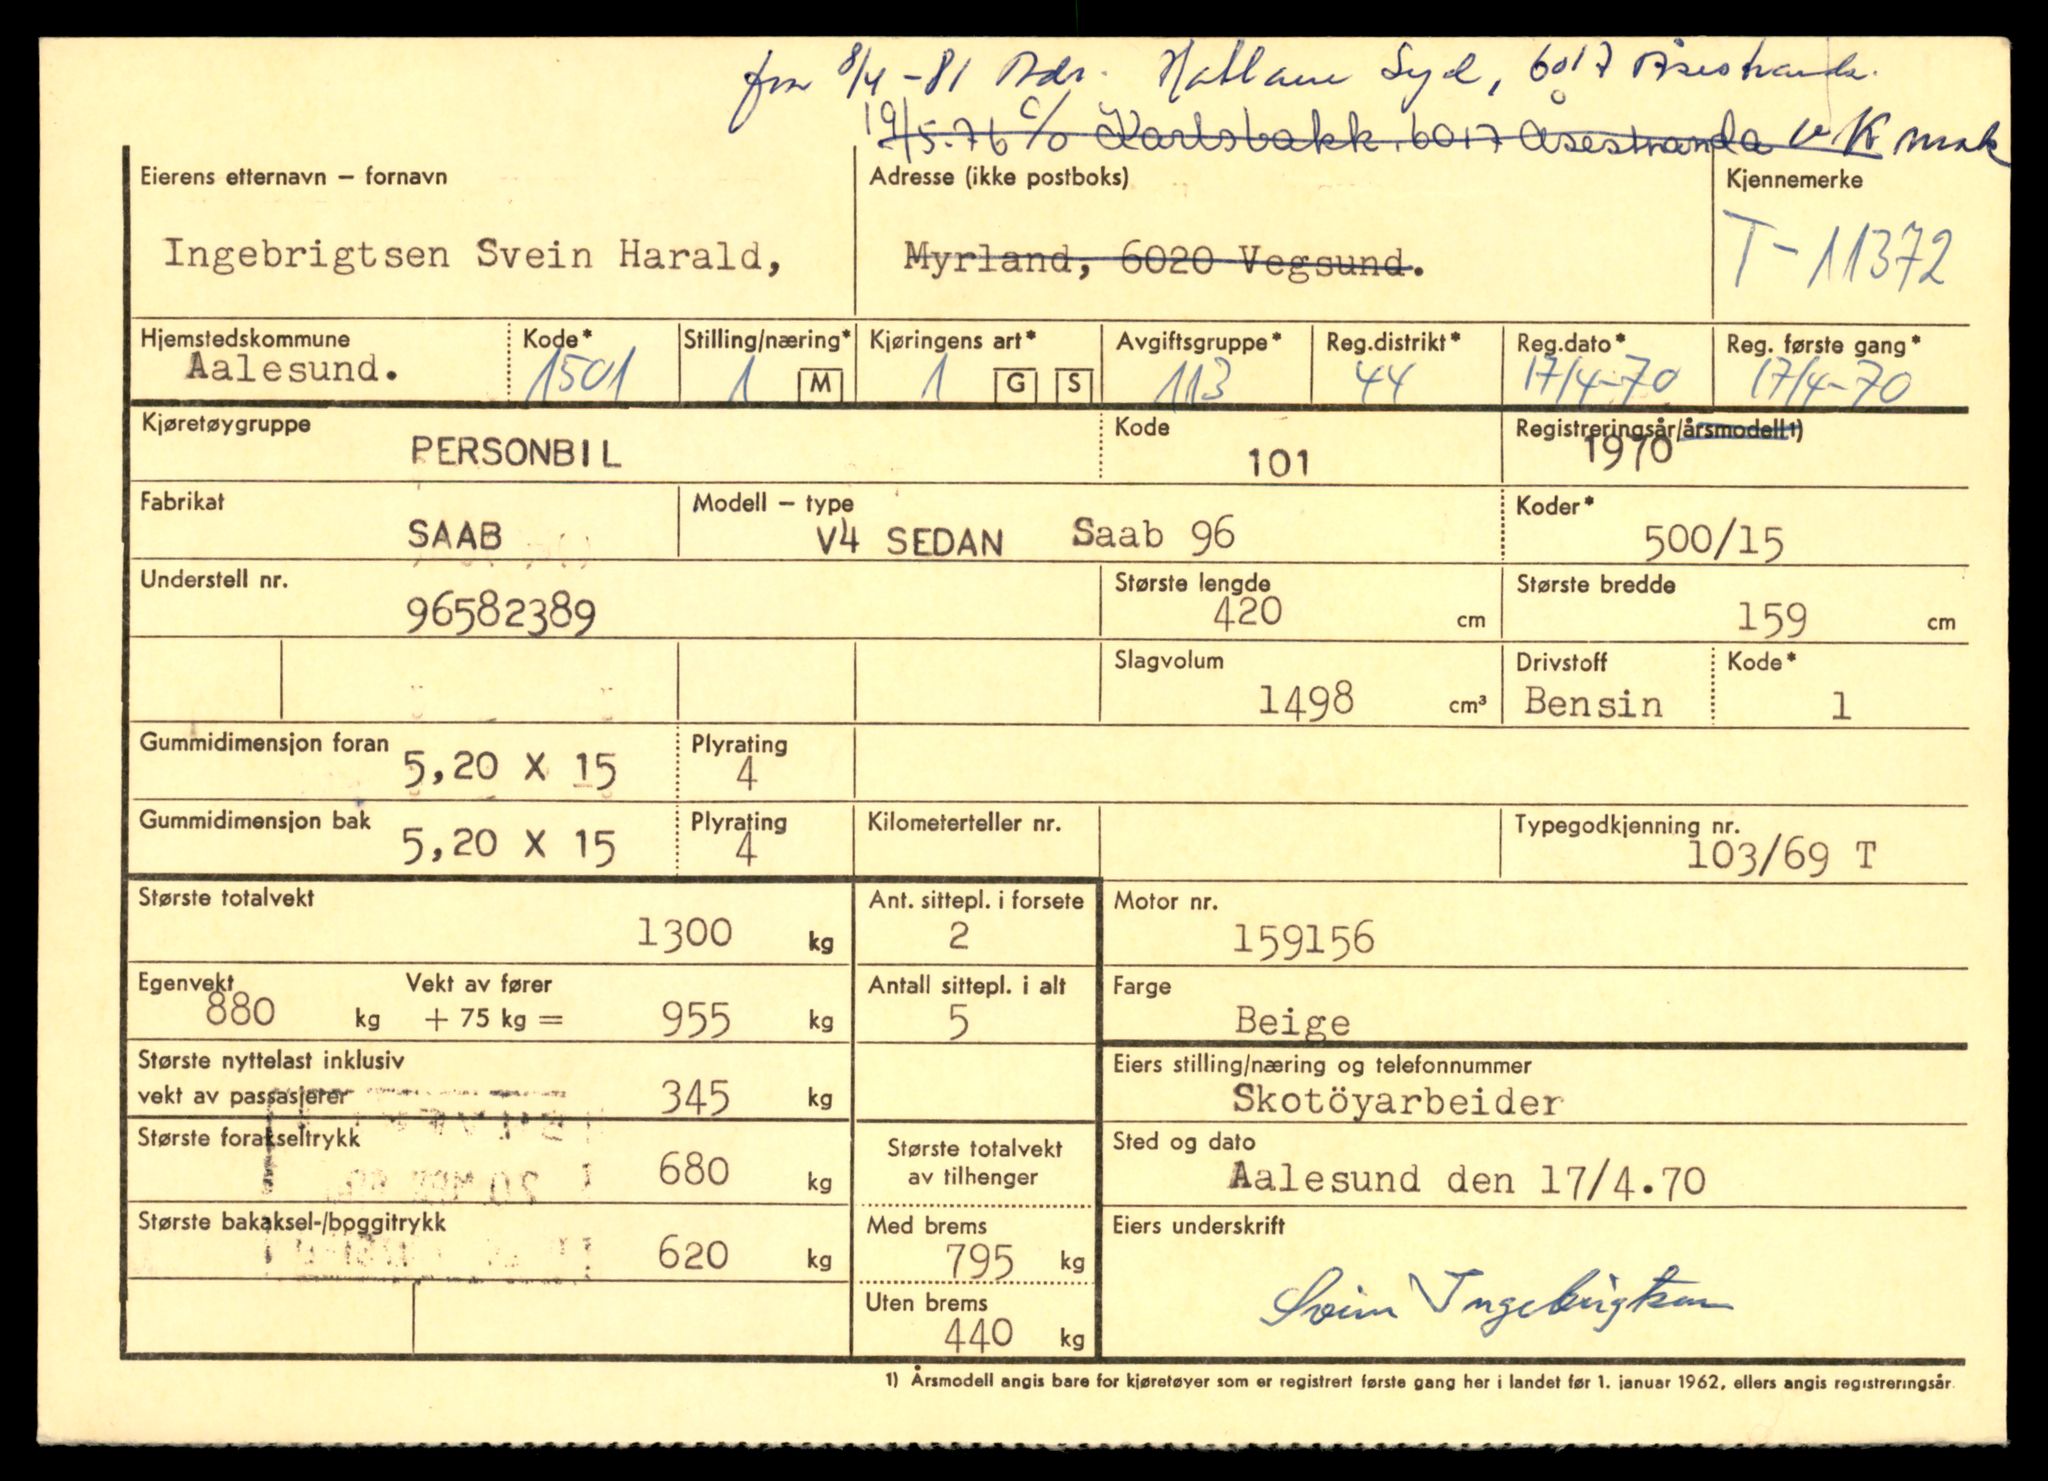 fra 8/4-81 Adr. Hatlane Syd, 6017 Åsestranda.
19/5.76 c/o Karlsbakk. 6017 Åsestranda
Eierens etternavn – fornavn Adresse (ikke postboks) Kjennemerke
Ingebrigtsen Svein Harald, Myrland, 6020 Vegsund. T-11372
Hjemstedskommune Kode* Stilling/næring* Kjøringens art* Avgiftsgruppe* Reg.distrikt* Reg.dato* Reg. første gang*
Aalesund. 1501 1 M 1 G S 113 44 17/4-70 17/4-70
Kjøretøygruppe Kode Registreringsår/årsmodell 1)
PERSONBIL 101 1970
Fabrikat Modell – type Koder*
SAAB V4 SEDAN Saab 96 500/15
Understell nr. Største lengde Største bredde
96582389 420 cm 159 cm
Slagvolum Drivstoff Kode*
1498 cm³ Bensin 1
Gummidimensjon foran Plyrating
5,20 X 15 4
Gummidimensjon bak Plyrating Kilometerteller nr. Typegodkjenning nr.
5,20 X 15 4 103/69 T
Største totalvekt Ant. sittepl. i forsete Motor nr.
1300 kg 2 159156
Egenvekt Vekt av fører Antall sittepl. i alt Farge
880 kg + 75 kg = 955 kg 5 Beige
Største nyttelast inklusiv Eiers stilling/næring og telefonnummer
vekt av passasjerer 345 kg Skotöyarbeider
Største forakseltrykk Største totalvekt Sted og dato
680 kg av tilhenger Aalesund den 17/4.70
Største bakaksel-/boggitrykk Med brems Eiers underskrift
620 kg 795 kg
Svein Ingebrigtsen
Uten brems
440 kg
1) Årsmodell angis bare for kjøretøyer som er registrert første gang her i landet før 1. januar 1962, ellers angis registreringsår.